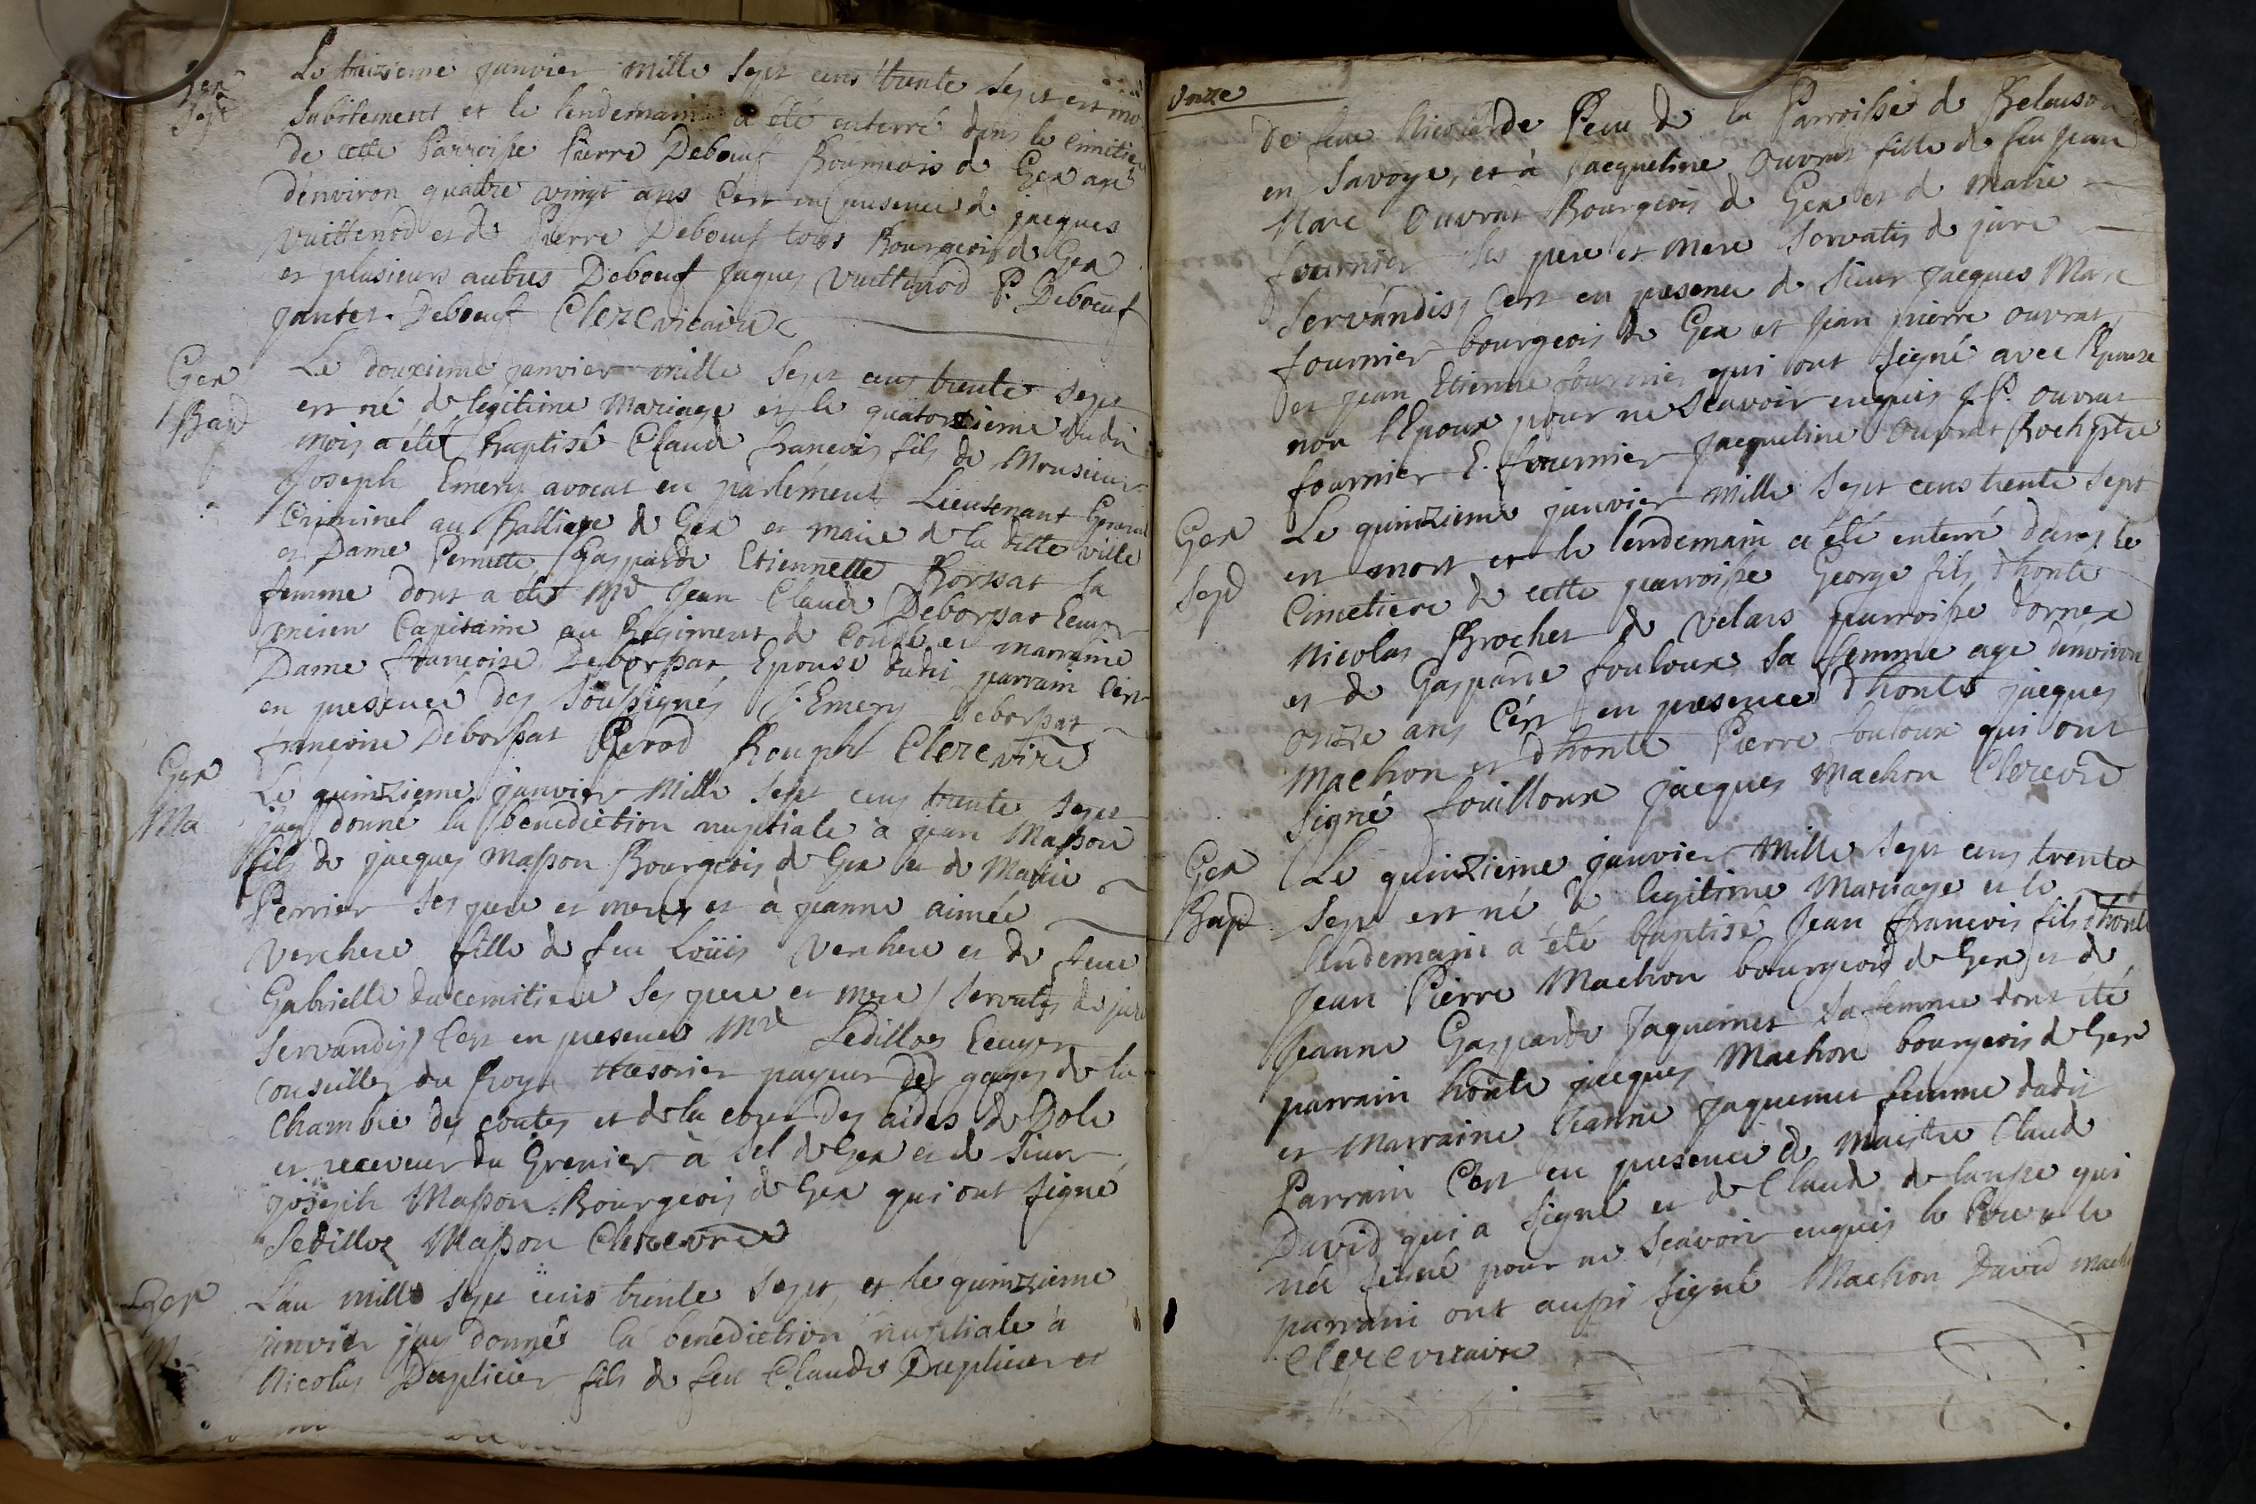 Gex
Sept
Le treizieme janvier mille sept cens trente sept est mo
subitement et le lendemain a été enterré dans le cimitiere
de cette Parroisse Pierre Deboeuf Bourgeois de Gex agé
d'environ quatre vingt ans C'est en presence de jacques
Vuittenod et de Pierre Deboeuf tous Bourgeois de Gex
et plusieurs autres Deboeuf Jaques Vuittenod P. Deboeuf
Deboeuf Clerc vicaire
Gex
Bap
Le douzieme janvier mille sept cens trente sept
est né de legitime Mariage et le quatorzieme dudit
mois a été Baptisé Claude francois fils de Monsieur
Joseph Emery avocat en parlement Lieutenant General
Criminel au Balliage de Gex et maire de la ditte ville
et Dame Pernette Gasparde Etiennette Borssat sa
femme dont a été Mr Jean Claude Deborssat Ecuyer
encien Capitaine au Regiment de Condé et marraine
Dame francoise Deborssat Epouse dudit parrain C'est
en presence des soussignés J. Emery Deborssat
francoise Deborssat Perod Rouph Clerc vire
Gex
Ma
Le quinzieme janvier mille sept cens trente sept
jay donné la benediction nuptiale à jean Masson
fils de jacques Masson Bourgeois de Gex et de Marie
Perrier ses pere et mere et à jeanne aimée
Verchere fille de feu Loüis Verchere et de feue
Gabrielle ducemitiere ses pere et mere / servatis de jure
servandis / C'est en presence Mr Sedillot Ecuyer
Conseiller du Roy tresorier payeur des gages de la
Chambre des contes et de la cour des aides de Dole
et receveur du Grenier à sel de Gex et de sieur
joseph Masson Bourgeois de Gex qui ont signé
Sedillot Masson Clerc vre
Gex
M
L'an mille sept cens trente sept et le quinzieme
janvier j'ay donné la benediction nuptiale à
Nicolas Duplicier fils de feu Claude Duplicier et
onze
de feue Nicolarde Pecu de la Parroisse de
en Savoye, et à jacqueline Ouvrat fille de feu Jean
Marc Ouvrat Bourgeois de Gex et de Marie
fournier ses pere et mere servatis de jure
servandis, C'est en presence de sieur Jacques Marc
fournier bourgeois de Gex et jean pierre ouvrat
et jean Etienne fournier qui ont signé avec l'Epouse
non l'Epoux pour ne scavoir enquis J. P. Ouvrat
fournier E. fournier Jacqueline Ouvrat Roch ptre
Gex
Sept
Le quinzieme janvier mille sept cens trente sept
est mort et le lendemain a été enterré dans le
Cimetiere de cette parroisse George fils d'honte
Nicolas Brochet de Velars parroisse dornex
et de Gasparde fouloux sa femme agé d'environ
onze ans C'est en presence d'honte jacques
Machon et d'honte Pierre fouloux qui ont
signé fouilloux jacques Machon Clerc vre
Gex
Bapt
Le quinzieme janvier mille sept cens trente
sept est né de legitime Mariage et le
lendemain a été baptisé Jean francois fils d'honte
Jean Pierre Machon bourgeois de Gex et de
Jeanne Gasparde Jaquemet sa femme dont été
parrain honte jacques Machon bourgeois de Gex
et Marraine Jeanne Jaquemet femme dudit
Parrain C'est en presence de Maistre Claude
David qui a signé et de Claude de qui
n'a signé pour ne scavoir enquis le Pere et le
parrain ont aussi signé Machon David mach
Clerc vicaire